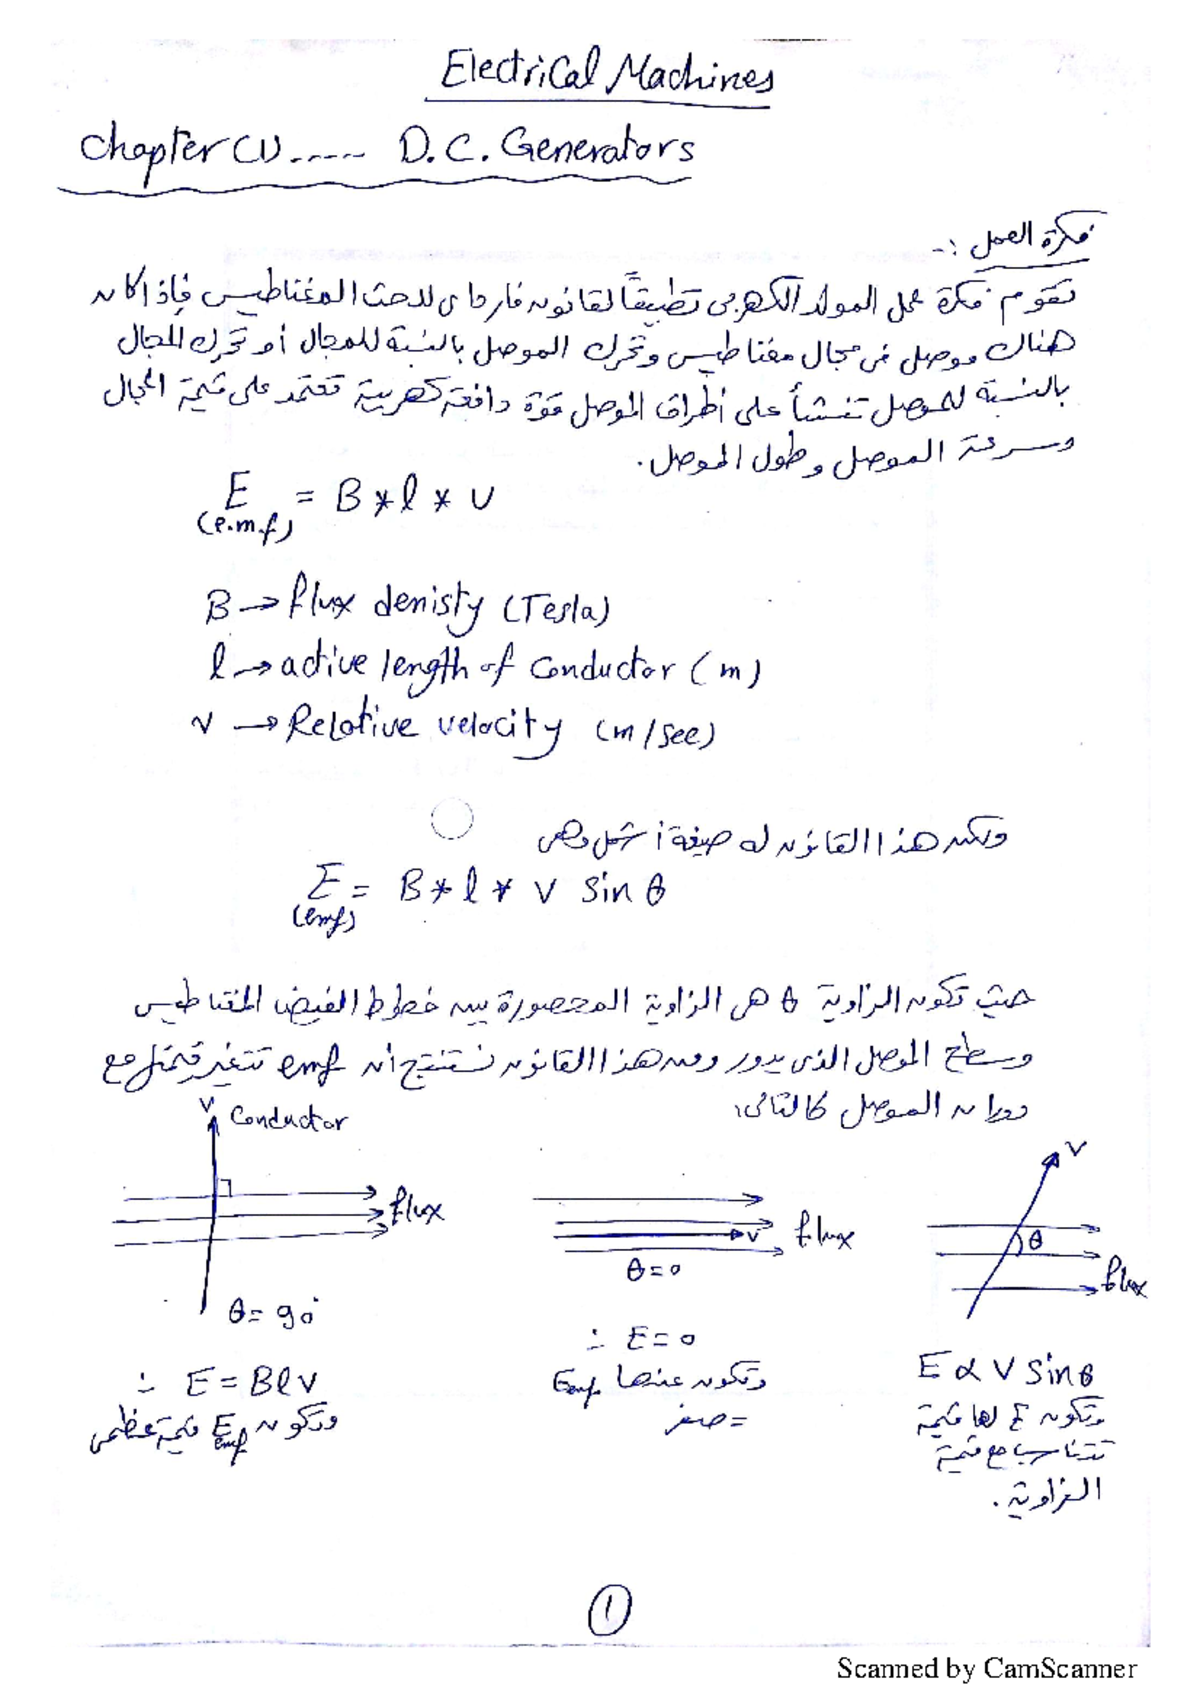 Electrical Machines
Chapter (1)..... D.C. Generators
فكرة العمل :-
تقوم فكرة عمل المولد الكهربى تطبيقاً لقانون فارداى للحث المغناطيسى فإذا كان
هناك موصل فى مجال مغناطيسى وتحرك الموصل بالنسبة للمجال أو تحرك المجال
بالنسبة للموصل تنشأ على أطراف الموصل قوة دافعة كهربية تعتمد على قيمة المجال
وسرعة الموصل وطول الموصل.
E = B * l * v
(e.m.f)
B → flux denisty (Tesla)
l → active length of conductor (m)
v → Relative velocity (m/sec)
ولكن هذا القانون له صيغة أشمل وهى
E = B * l * v sin θ
(emf)
حيث تكون الزاوية θ هى الزاوية المحصورة بين خطوط الفيض المغناطيسى
وسطح الموصل الذى يدور ومن هذا القانون نستنتج أن emf تتغير قيمتها مع
دوران الموصل كالتالى:
v
Conductor
flux
θ = 90°
∴ E = Blv
وتكون Eemf قيمة عظمى
v
flux
θ = 0
∴ E = 0
وتكون عندها Eemf
= صفر
v
θ
flux
E α V sin θ
وتكون E لها قيمة
تتناسب مع قيمة
الزاوية.
1
Scanned by CamScanner